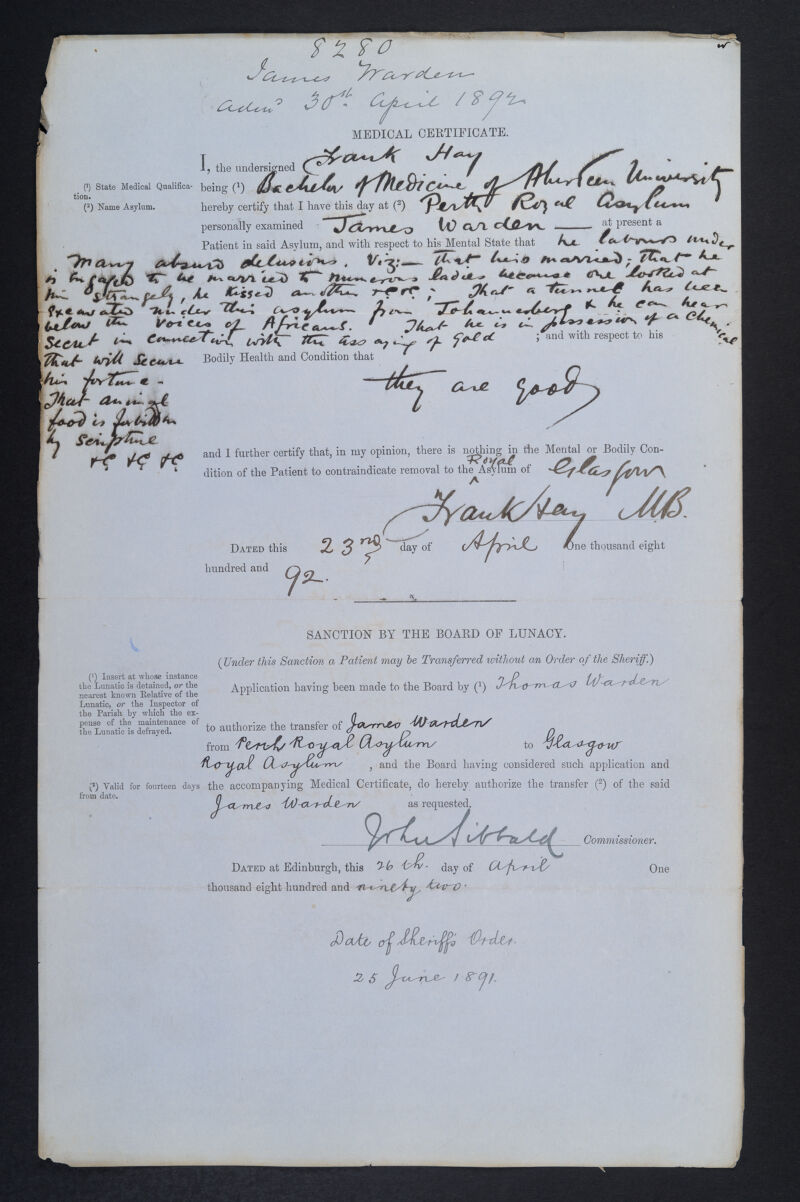 8280
James Warden
Adm^d 30th April 1892
MEDICAL CERTIFICATE.
I, the undersigned Frank Hay
(¹) State Medical Qualifica-
tion.
(²) Name Asylum.
being (¹) Bachelor of Medicine of Aberdeen University
hereby certify that I have this day at (²) Perth Royal Asylum
personally examined James Warden — at present a
Patient in said Asylum, and with respect to his Mental State that he labours under
many absurd delusions. Viz:— that he is married; that he
is engaged to be married to numerous ladies because one looked at
him strangely, he kissed another &c &c; That a tunnel has been
excavated under this asylum from Johannesberg & he can hear
below the voices of Africans. That he is in possession of a Chemical
Secret in connection with the assaying of gold ; and with respect to his
that will secure Bodily Health and Condition that
his fortune - they are good
That animal
food is forbidden
by scripture
&c &c &c
and I further certify that, in my opinion, there is nothing in the Mental or Bodily Con-
dition of the Patient to contraindicate removal to the Royal Asylum of Glasgow
Frank Hay M.B.
DATED this 23rd day of April One thousand eight
hundred and 92.
SANCTION BY THE BOARD OF LUNACY.
(Under this Sanction a Patient may be Transferred without an Order of the Sheriff.)
(¹) Insert at whose instance
the Lunatic is detained, or the
nearest known Relative of the
Lunatic, or the Inspector of
the Parish by which the ex-
pense of the maintenance of
the Lunatic is defrayed.
Application having been made to the Board by (¹) Thomas Warden
to authorize the transfer of James Warden
from Perth Royal Asylum to Glasgow
Royal Asylum , and the Board having considered such application and
(²) Valid for fourteen days
from date.
the accompanying Medical Certificate, do hereby authorize the transfer (²) of the said
James Warden as requested.
John Sibbald Commissioner.
DATED at Edinburgh, this 26th. day of April One
thousand eight hundred and ninety two.
Date of Sheriff's Order.
25 June 1891.